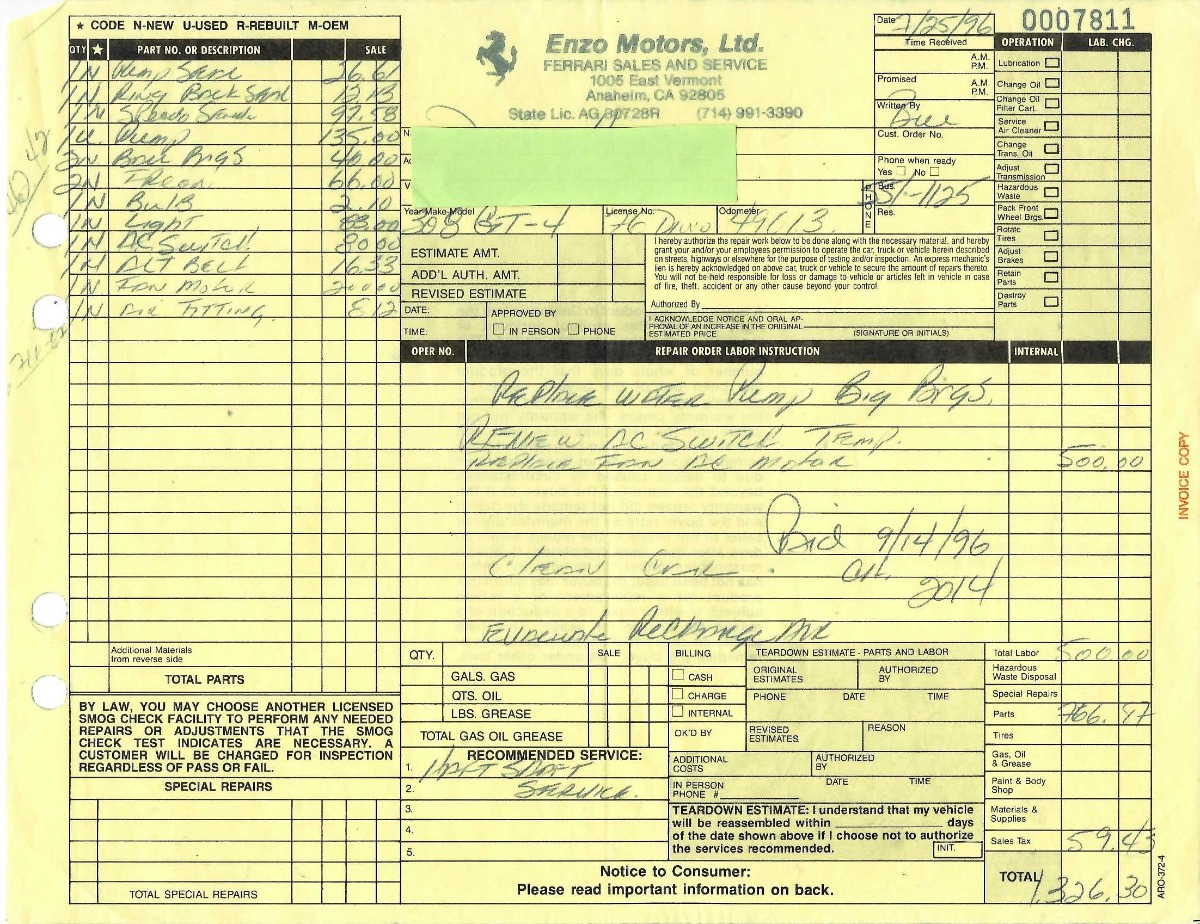 ★ CODE N-NEW U-USED R-REBUILT M-OEM
QTY ★ PART NO. OR DESCRIPTION SALE
1 N Pump Seal 26.61
1 N Ring Back Seal 12.13
1 N Speedo 97.58
1 U. Pump 135.00
2 N Brgs 40.00
2 N Freon 66.00
1 N Bulb 2.10
1 N Light 83.00
1 N AC Switch 80 00
1 N ALT BELT 16.33
1 N Fan Motor 200 00
1 N Air Fitting. 8 12
Additional Materials
from reverse side
TOTAL PARTS
BY LAW, YOU MAY CHOOSE ANOTHER LICENSED
SMOG CHECK FACILITY TO PERFORM ANY NEEDED
REPAIRS OR ADJUSTMENTS THAT THE SMOG
CHECK TEST INDICATES ARE NECESSARY. A
CUSTOMER WILL BE CHARGED FOR INSPECTION
REGARDLESS OF PASS OR FAIL.
SPECIAL REPAIRS
TOTAL SPECIAL REPAIRS
Enzo Motors, Ltd.
FERRARI SALES AND SERVICE
1005 East Vermont
Anaheim, CA 92805
State Lic. AG 80728R (714) 991-3390
Date 7/25/96
0007811
Time Received
A.M.
P.M.
Promised
A.M.
P.M.
Written By
Bill
Cust. Order No.
Phone when ready
Yes No
PHONE
Bus. 551-1125
Res.
Year-Make-Model 308 GT-4
License No. 76 Dino
Odometer 49613
ESTIMATE AMT.
ADD'L AUTH. AMT.
REVISED ESTIMATE
DATE: APPROVED BY
TIME: IN PERSON PHONE
I hereby authorize the repair work below to be done along with the necessary material, and hereby
grant your and/or your employees permission to operate the car, truck or vehicle herein described
on streets, highways or elsewhere for the purpose of testing and/or inspection. An express mechanic's
lien is hereby acknowledged on above car, truck or vehicle to secure the amount of repairs thereto.
You will not be held responsible for loss or damage to vehicle or articles left in vehicle in case
of fire, theft, accident or any other cause beyond your control.
Authorized By
I ACKNOWLEDGE NOTICE AND ORAL AP-
PROVAL OF AN INCREASE IN THE ORIGINAL
ESTIMATED PRICE. (SIGNATURE OR INITIALS)
OPERATION LAB. CHG.
Lubrication
Change Oil
Change Oil
Filter Cart.
Service
Air Cleaner
Change
Trans. Oil
Adjust
Transmission
Hazardous
Waste
Pack Front
Wheel Brgs.
Rotate
Tires
Adjust
Brakes
Retain
Parts
Destroy
Parts
OPER NO. REPAIR ORDER LABOR INSTRUCTION INTERNAL
Replace Water Pump Big Brgs.
Renew AC Switch Temp.
Replace Fan AC Motor 500.00
Paid 9/14/96
CK.
2014
Clean
Evacuate Recharge Air
QTY. SALE
GALS. GAS
QTS. OIL
LBS. GREASE
TOTAL GAS OIL GREASE
RECOMMENDED SERVICE:
1. Half Shaft
2. Service.
3.
4.
5.
BILLING
CASH
CHARGE
INTERNAL
OK'D BY
TEARDOWN ESTIMATE - PARTS AND LABOR
ORIGINAL
ESTIMATES
AUTHORIZED
BY
PHONE DATE TIME
REVISED
ESTIMATES
REASON
ADDITIONAL
COSTS
AUTHORIZED
BY
IN PERSON
PHONE #
DATE TIME
TEARDOWN ESTIMATE: I understand that my vehicle
will be reassembled within ____ days
of the date shown above if I choose not to authorize
the services recommended. INIT.
Notice to Consumer:
Please read important information on back.
Total Labor 500.00
Hazardous
Waste Disposal
Special Repairs
Parts 766.87
Tires
Gas, Oil
& Grease
Paint & Body
Shop
Materials &
Supplies
Sales Tax 59.43
TOTAL 1,326.30
INVOICE COPY
ARO-372-4